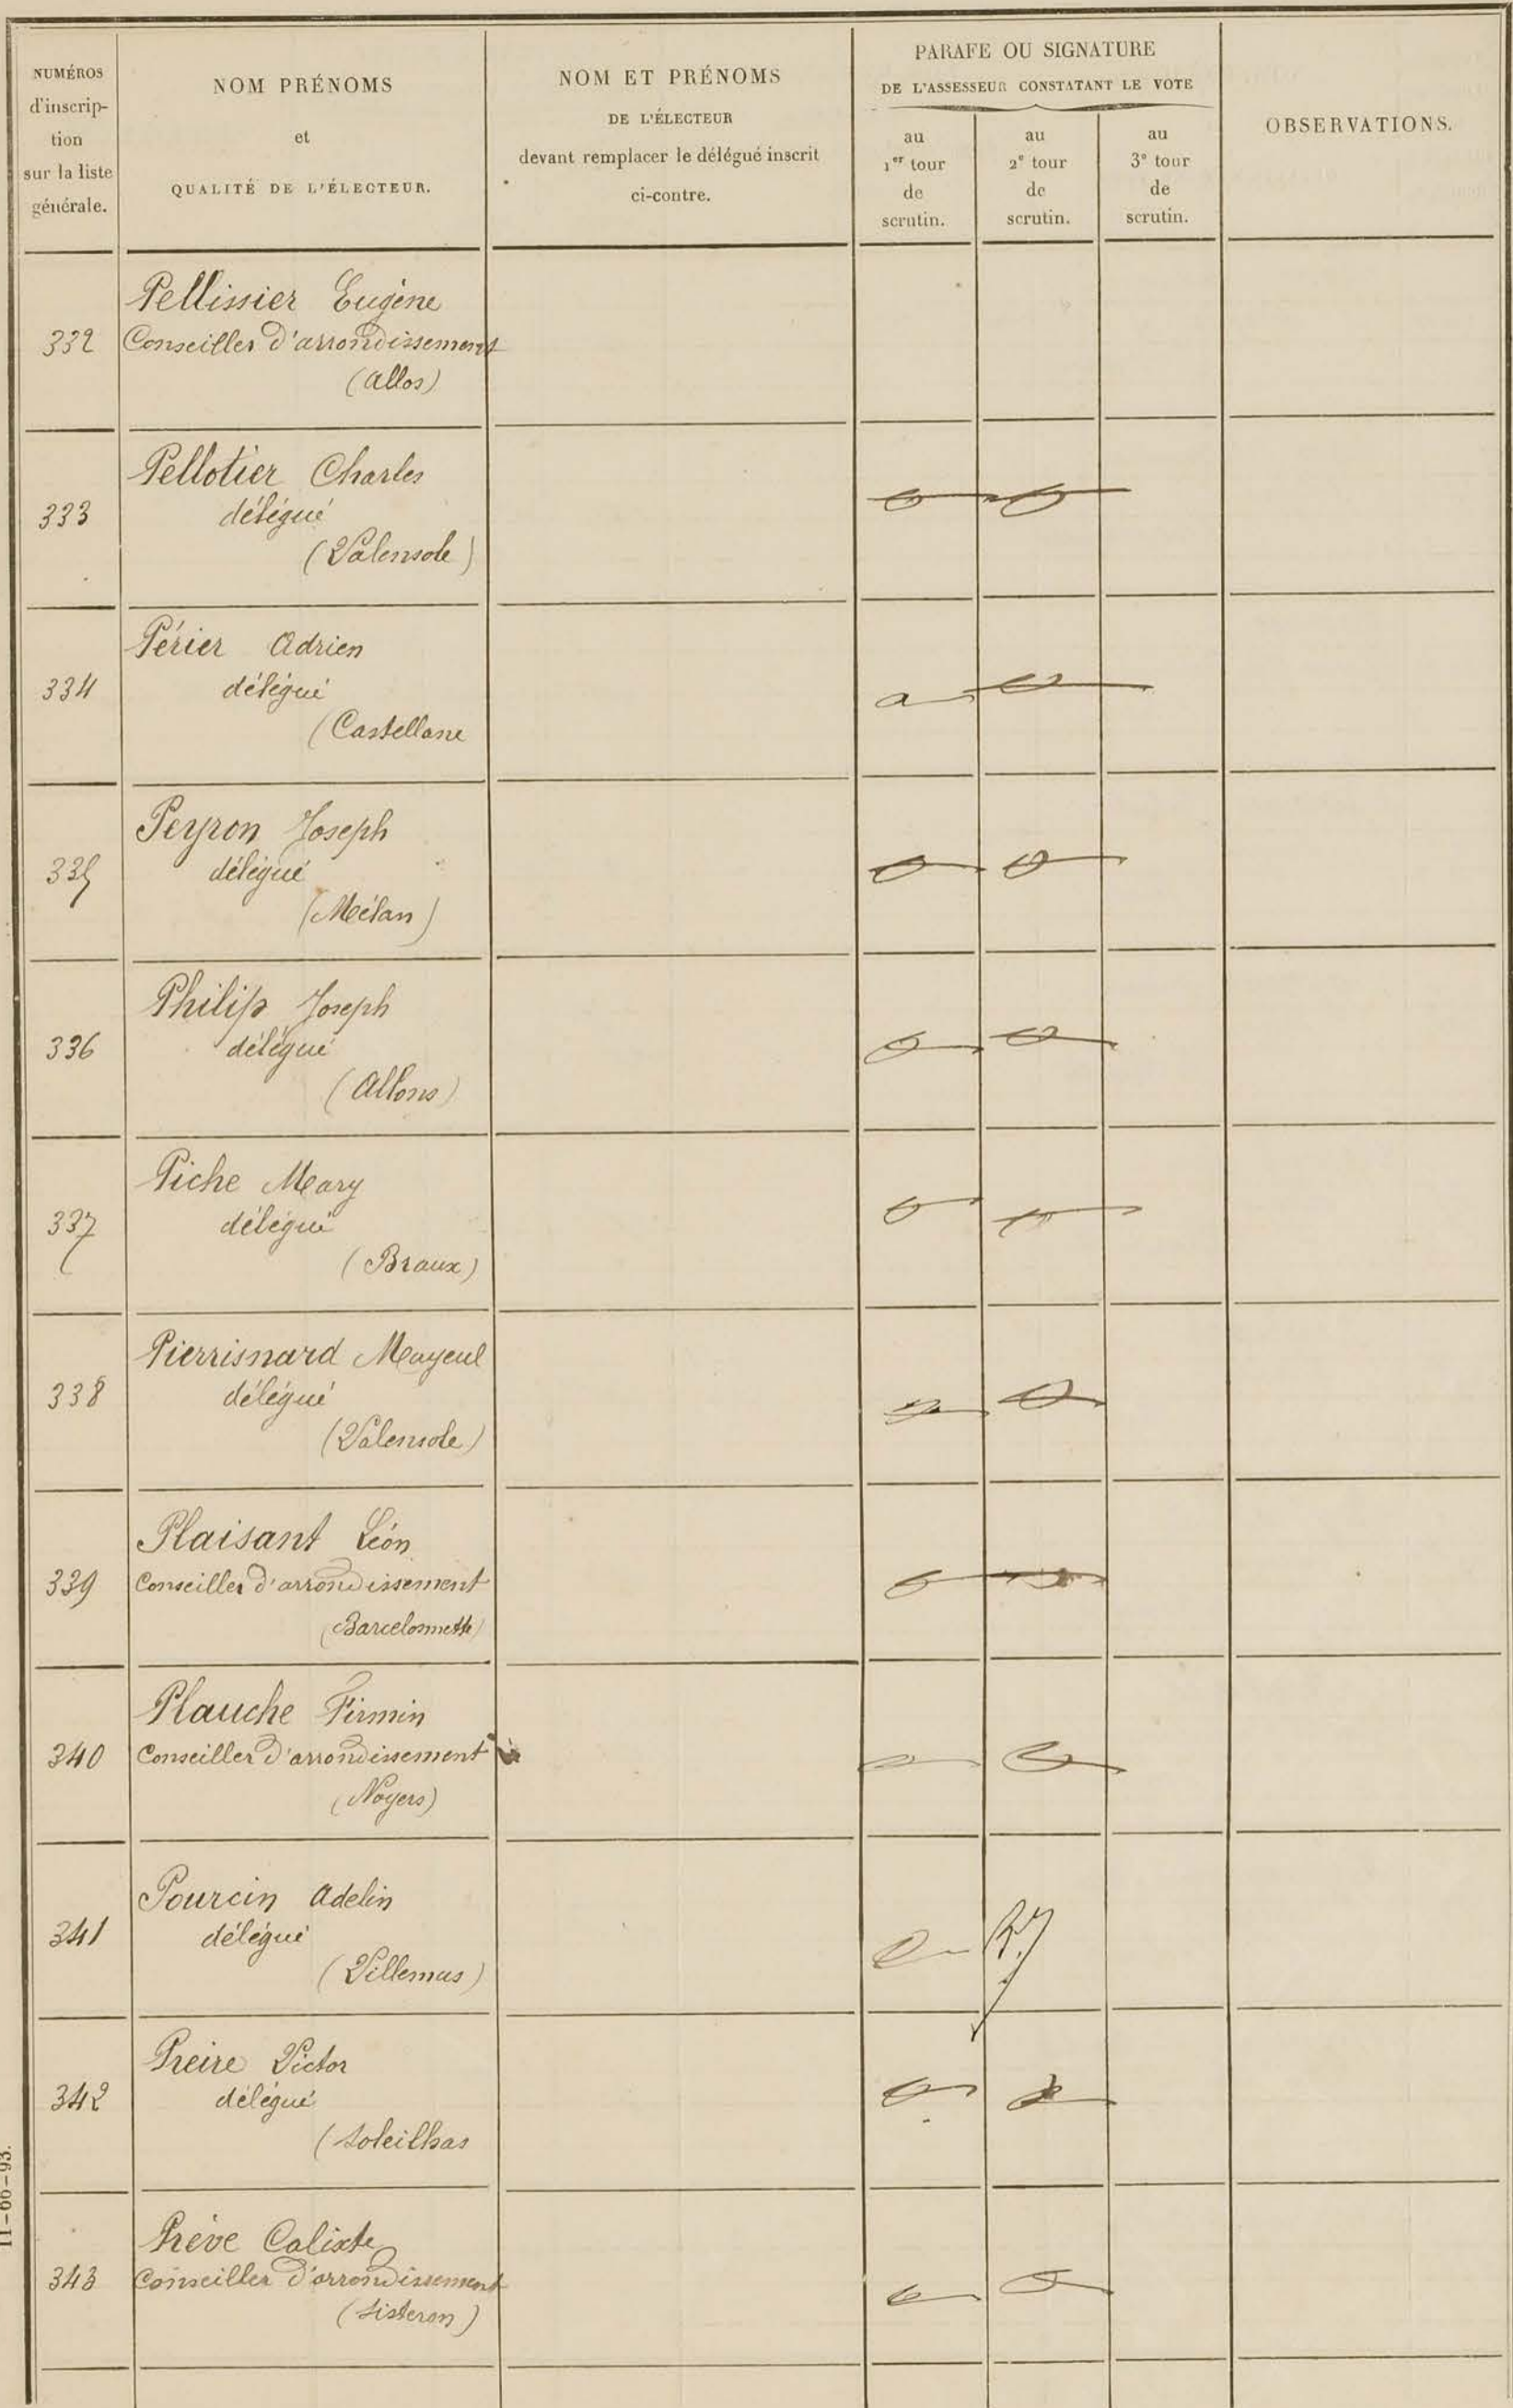 NUMÉROS
d'inscrip-
tion
sur la liste
générale.
NOM PRÉNOMS
et
QUALITÉ DE L'ÉLECTEUR.
NOM ET PRÉNOMS
DE L'ÉLECTEUR
devant remplacer le délégué inscrit
ci-contre.
PARAFE OU SIGNATURE
DE L'ASSESSEUR CONSTATANT LE VOTE
au
1er tour
de
scrutin.
au
2e tour
de
scrutin.
au
3e tour
de
scrutin.
OBSERVATIONS.
332
Pellissier Eugène
Conseiller d'arrondissement
(Allos)
333
Pellotier Charles
délégué
(Valensole)
334
Périer Adrien
délégué
(Castellane
335
Peyron Joseph
délégué
(Mélan)
336
Philip Joseph
délégué
(Allons)
337
Piche Mary
délégué
(Braux)
338
Pierrisnard Mayeul
délégué
(Valensole)
339
Plaisant Léon
Conseiller d'arrondissement
(Barcelonnette)
340
Plauche Firmin
Conseiller d'arrondissement
(Noyers)
341
Pourcin Adelin
délégué
(Villemus)
342
Preire Victor
délégué
(Soleilhas
343
Prève Calixte
Conseiller d'arrondissement
(Sisteron)
11-66-93.